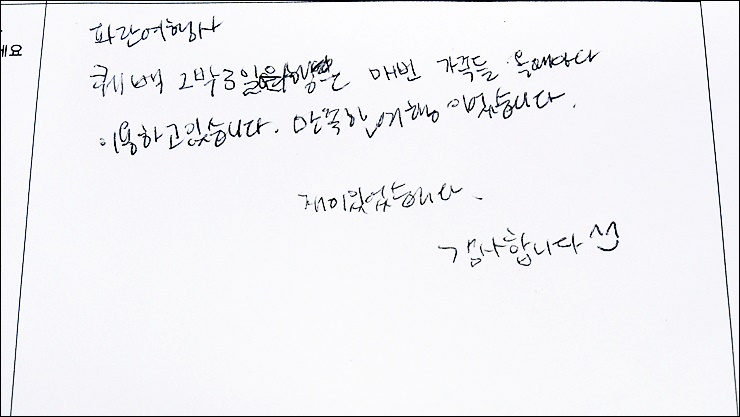 파란여행사
세요
퀘백 2박3일 은 매번 가족들 올때마다
이용하고있습니다. 만족한 여행이었습니다.
재미있었습니다.
감사합니다